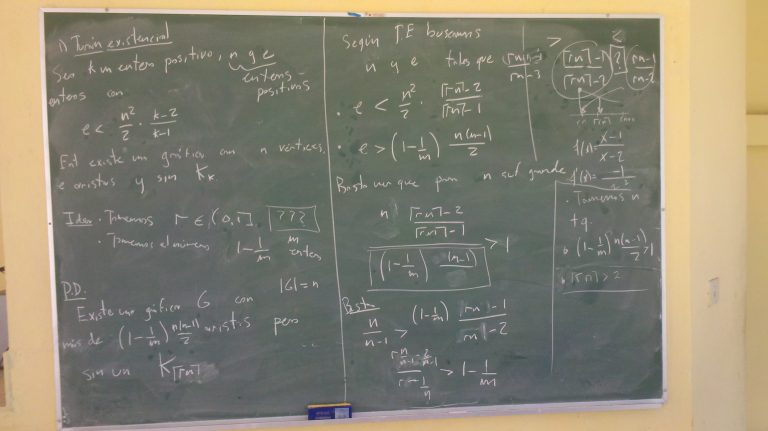 1) Turán existencial
Sea k un entero positivo, n y e
enteros
positivos
enteros con
e < n²/2 · k-2/k-1
Ent existe un gráfica con n vértices,
e aristas y sin K_k
Idea · Tomemos r ∈ (0,1] ???
· Tomemos el número 1 - 1/m m entero
P.D.
Existe una gráfica G con |G| = n
más de (1 - 1/m) n(n-1)/2 aristas pero
sin un K_⌈rn⌉
Según TE buscamos
n y e tales que
· e < n²/2 · ⌈rn⌉-2/⌈rn⌉-1
· e > (1 - 1/m) n(n-1)/2
Basta ver que para n suf grande
n ⌈rn⌉-2/⌈rn⌉-1
(1 - 1/m) (n-1) > 1
Basta
n/n-1 > (1 - 1/m) ⌈rn⌉-1/⌈rn⌉-2
> 1 - 1/m
> <
⌈rn⌉-1 ? rn-1
rn-2
f(x) = x-1/x-2
f(x) = -1
· Tomemos n
tq.
· (1 - 1/m) n(n-1)/2 > 1
· ⌈rn⌉ > 2